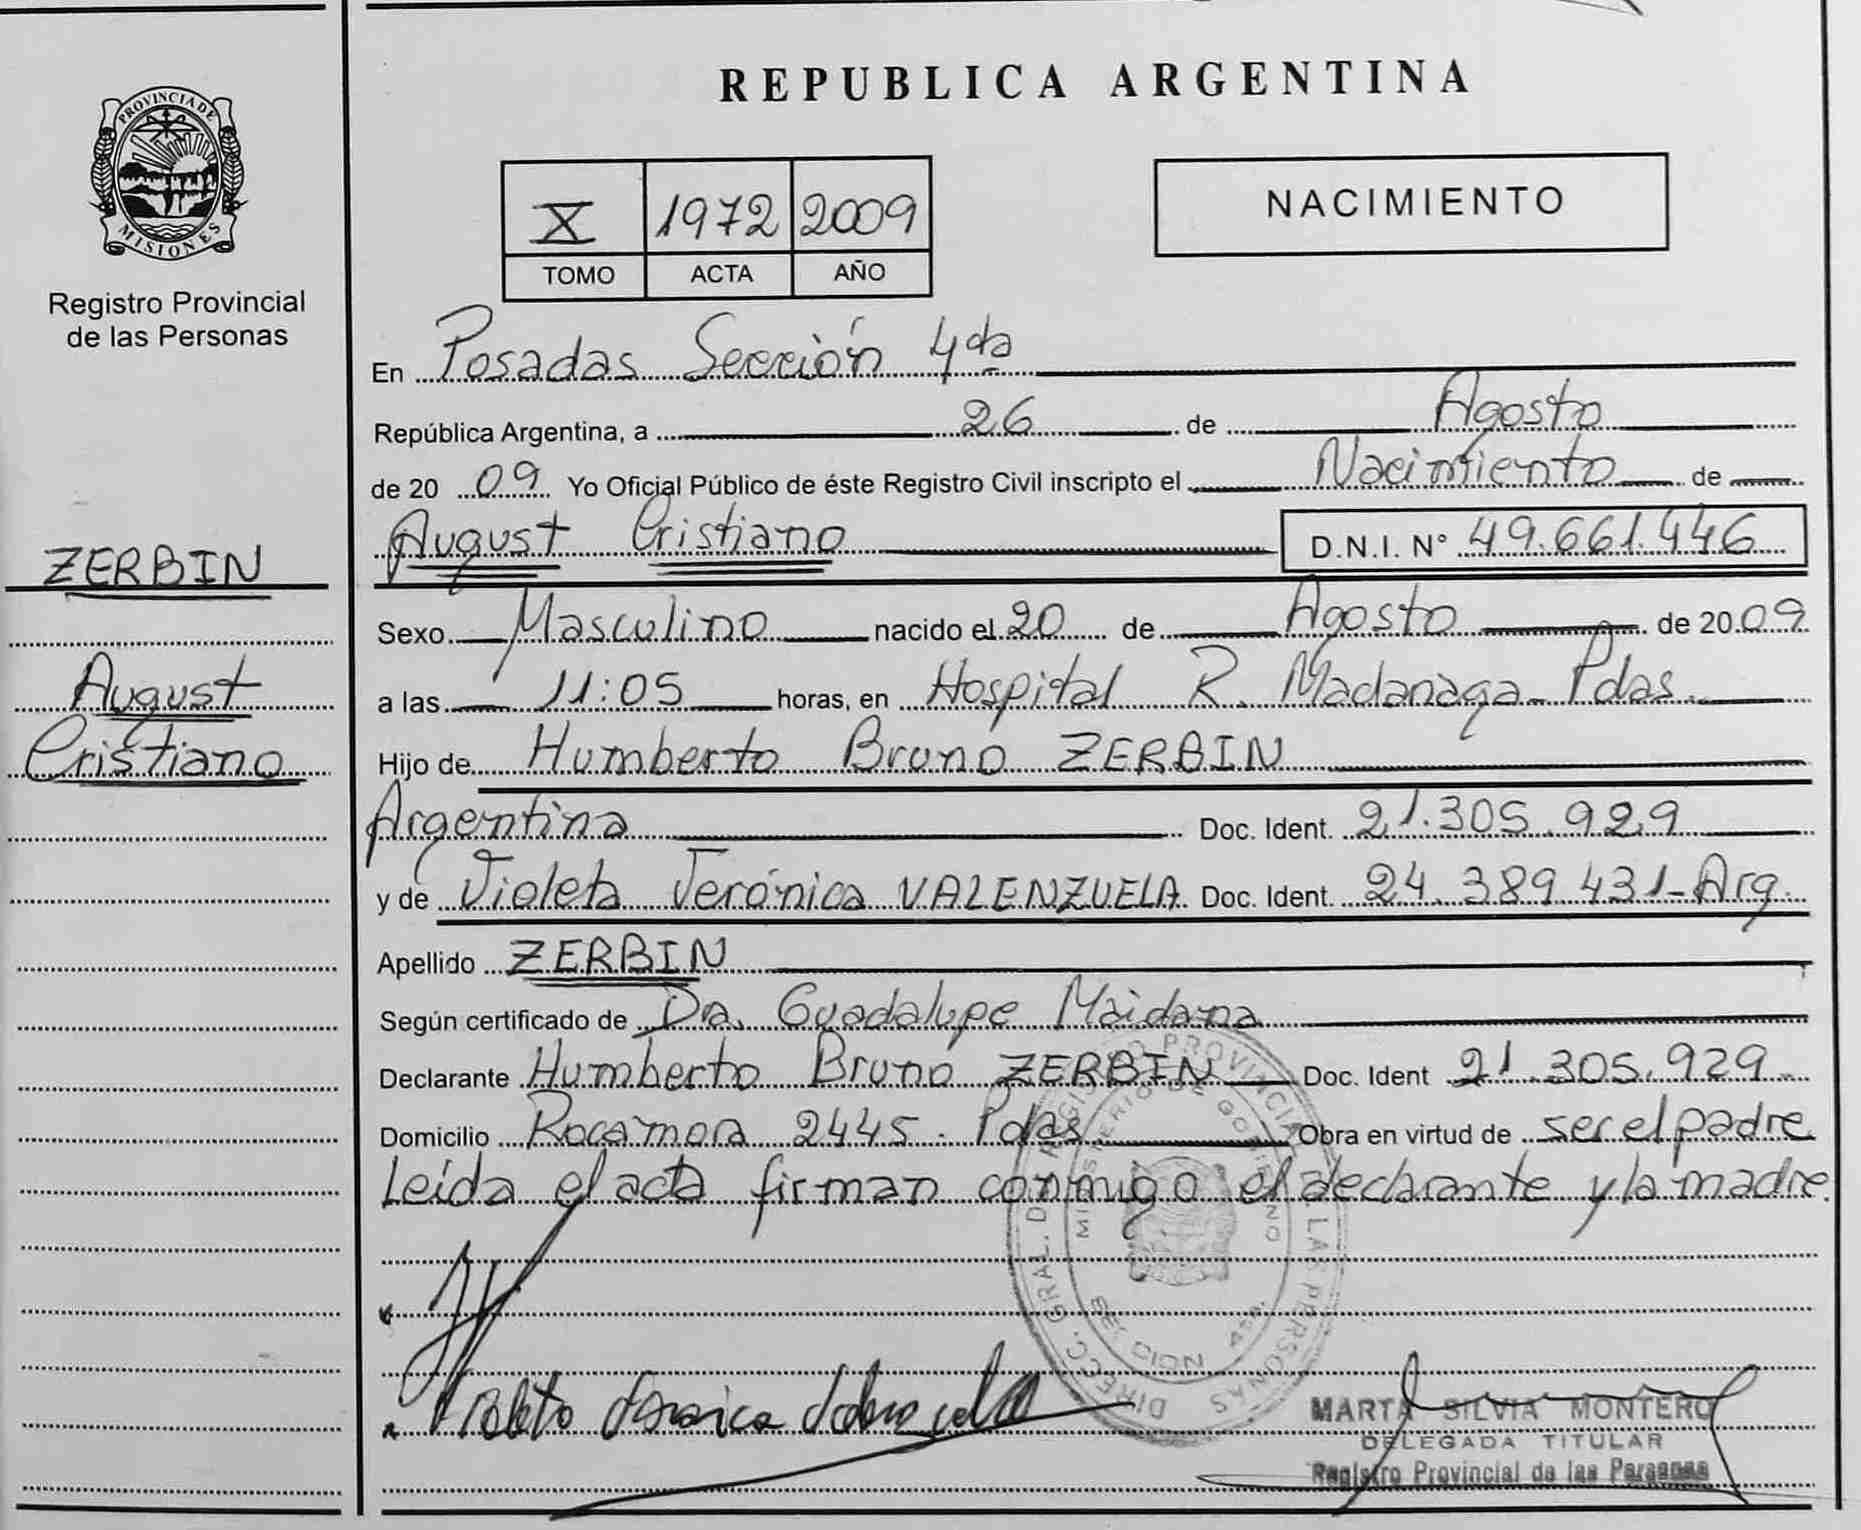 PROVINCIA DE
MISIONES
Registro Provincial
de las Personas
ZERBIN
August
Cristiano
REPUBLICA ARGENTINA
X 1972 2009
TOMO ACTA AÑO
NACIMIENTO
En Posadas Sección 4da
República Argentina, a 26 de Agosto
de 20 09 Yo Oficial Público de éste Registro Civil inscripto el Nacimiento de
August Cristiano D.N.I. N° 49.661.446
Sexo Masculino nacido el 20 de Agosto de 20 09
a las 11:05 horas, en Hospital R. Madanaga Pdas.
Hijo de Humberto Bruno ZERBIN
Argentina Doc. Ident. 21.305.929
y de Violeta Verónica VALENZUELA Doc. Ident. 24.389.431-Arg.
Apellido ZERBIN
Según certificado de Dra. Guadalupe Maidana
Declarante Humberto Bruno ZERBIN Doc. Ident 21.305.929
Domicilio Rocamora 2445. Pdas Obra en virtud de ser el padre
Leída el acta firman conmigo el declarante y la madre.
DIRECC. GRAL. DE REGISTRO PROVINCIAL DE LAS PERSONAS
MINISTERIO DE GOBIERNO
SECCION 4ta.
MARTA SILVIA MONTERO
DELEGADA TITULAR
Registro Provincial de las Personas